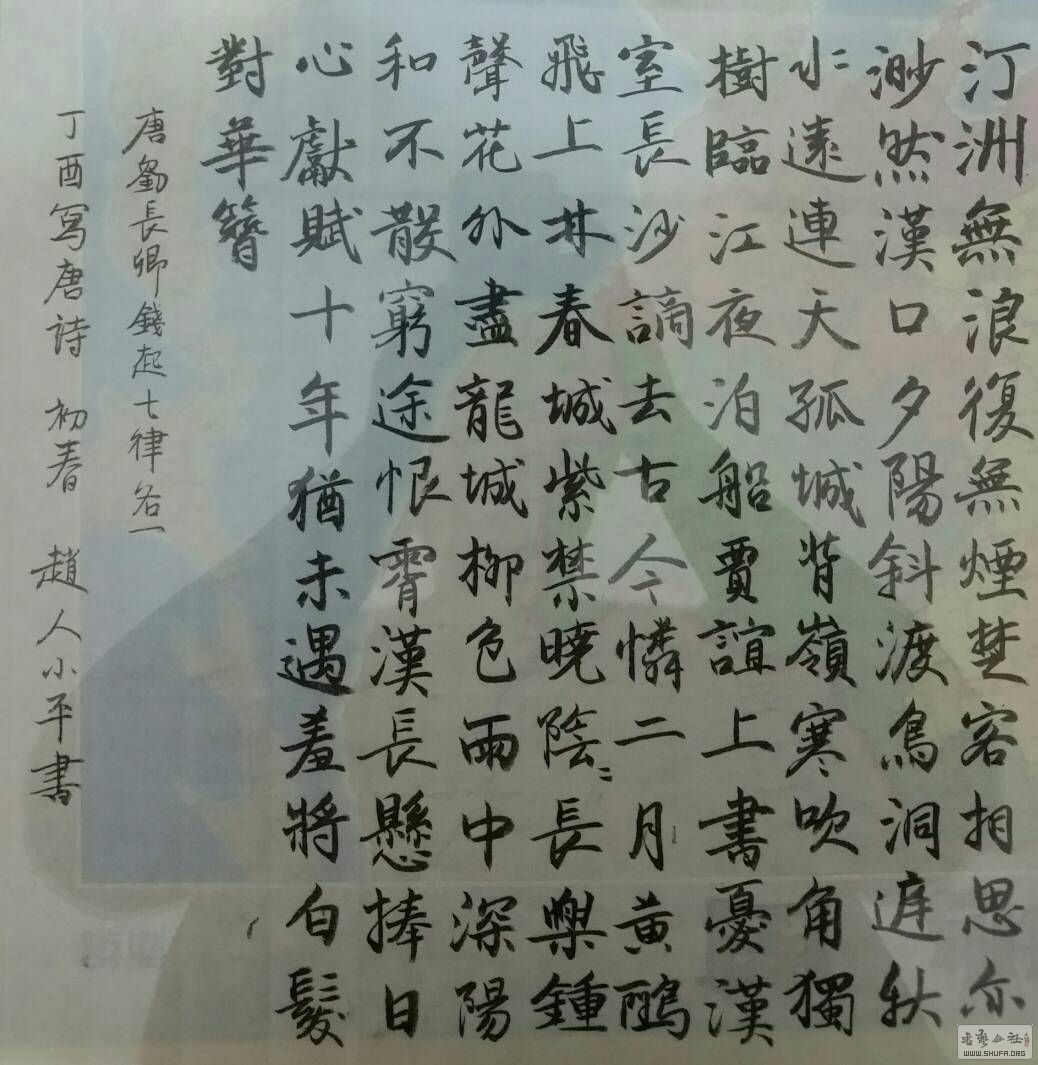 汀洲無浪復無煙楚客相思亦
渺然漢口夕陽斜渡鳥洞庭秋
水遠連天孤城背嶺寒吹角獨
樹臨江夜泊船賈誼上書憂漢
室長沙謫去古今憐二月黃鸝
飛上林春城紫禁曉陰〻長樂鍾
聲花外盡龍城柳色雨中深陽
和不散窮途恨霄漢長懸捧日
心獻賦十年猶未遇羞將白髮
對華簪
唐劉長卿錢起七律各一
丁酉寫唐詩 初春 趙人小平書
書藝公社
WWW.SHUFA.ORG